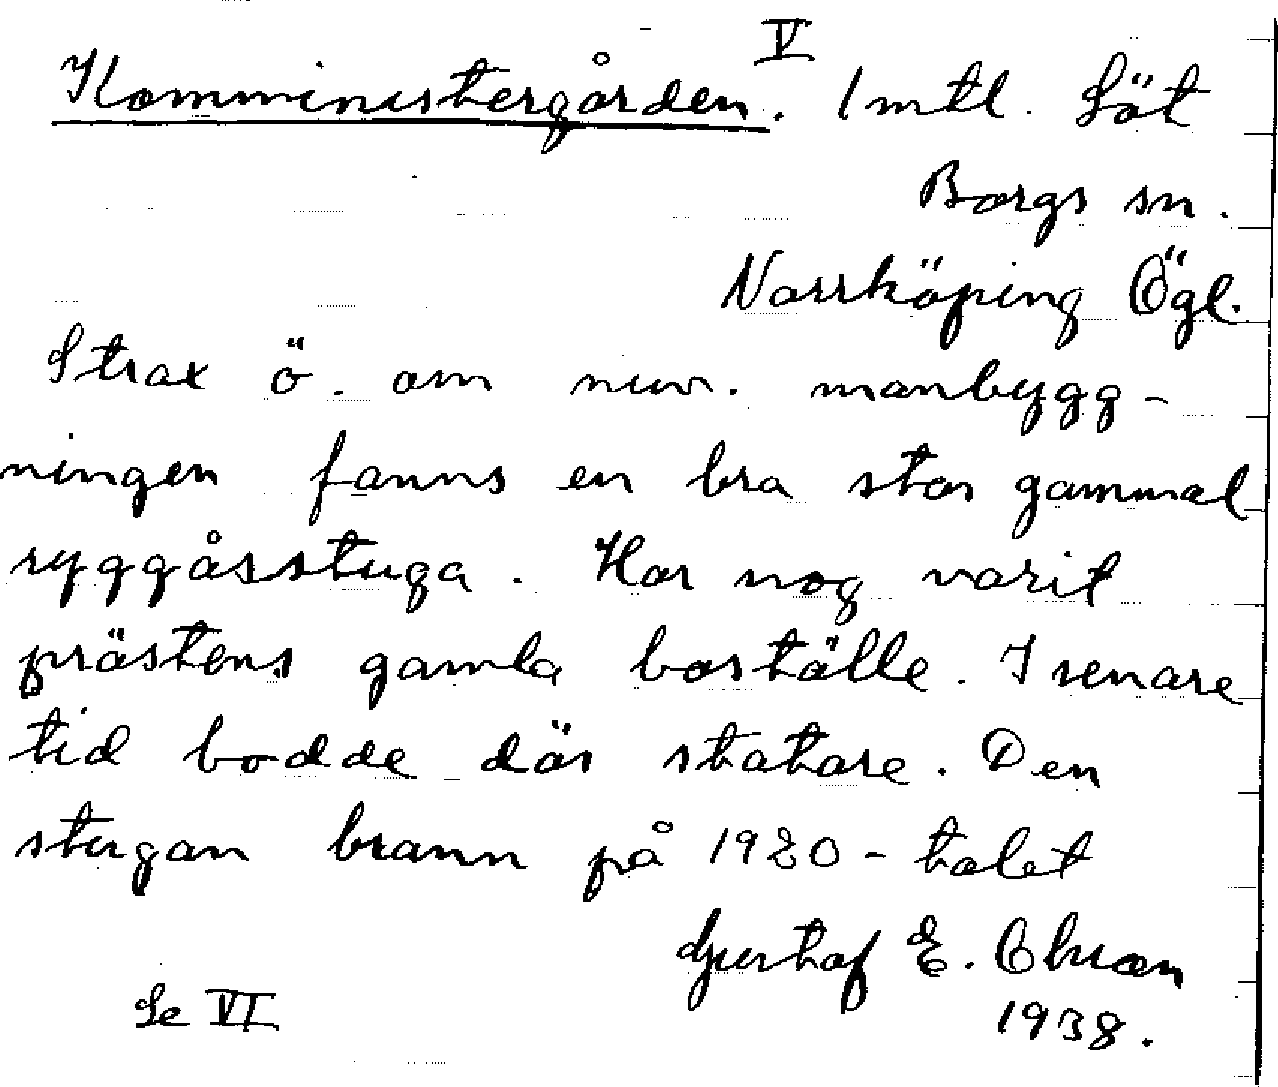 V
Komministergården. 1 mtl. Löt
Borgs sn.
Norrköping Ögl.
Strax ö. om nuv. manbygg-
ningen fanns en bra stor gammal
ryggåsstuga. Har nog varit
prästens gamla boställe. I senare
tid bodde där statare. Den
stugan brann på 1920-talet
Gustaf E.
Se VI 1938.